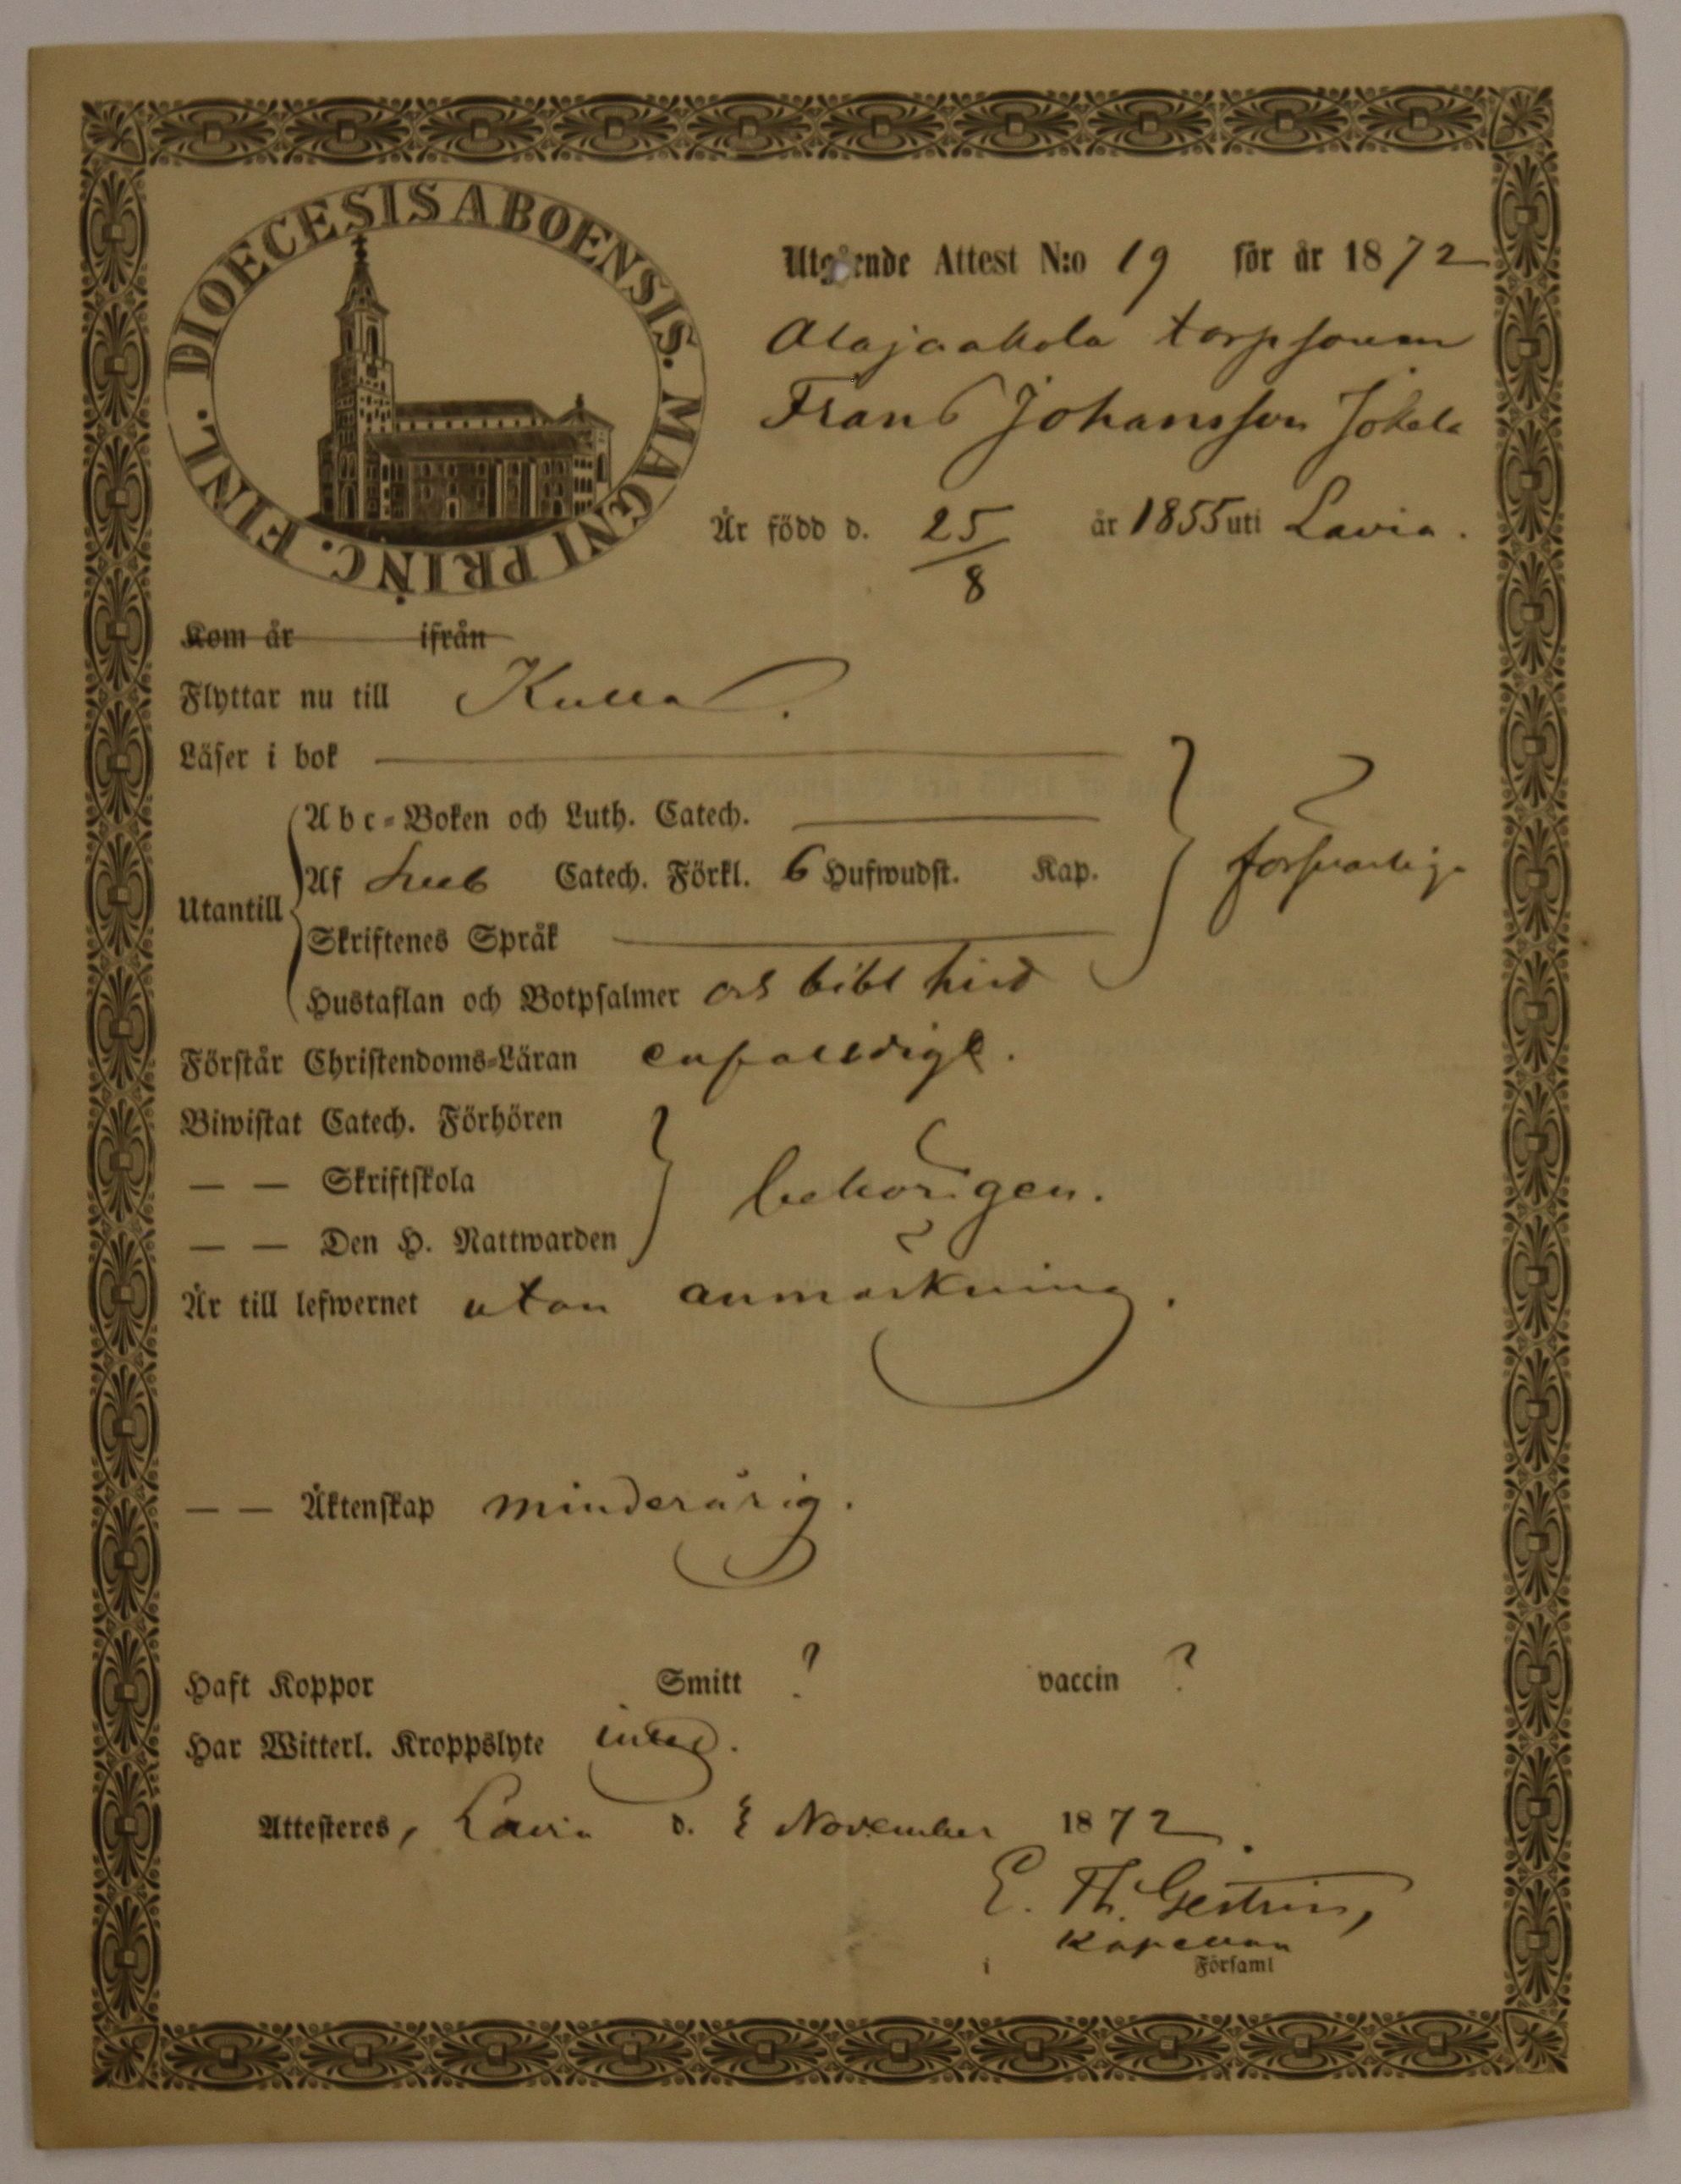 DIOECESIS ABOENSIS. MAGNI PRINC. FINL.
Utgående Attest N:o 19 för år 1872
Alajaakola torpsonen
Frans Johansson Jokela
Är född d. 25/8 år 1855 uti Lavia.
Kom år ifrån
Flyttar nu till Kulla.
Läser i bok
Abc-Boken och Luth. Catech.
Af Sveb Catech. Förkl. 6 Hufwudst. Kap. försvarligt
Utantill
Skriftenes Språk
Hustaflan och Botpsalmer och bibl hist
Förstår Christendoms-Läran enfalldigt.
Biwistat Catech. Förhören
— — Skriftskola behörigen.
— — Den H. Nattwarden
Är till lefwernet utan anmärkning.
— — Äktenskap minderårig.
Haft Koppor Smitt ? vaccin ?
Har Witterl. Kroppslyte intet.
Attesteres, Lavia d. November 1872.
E. Th. Gestrin,
Kapellan
i Församl